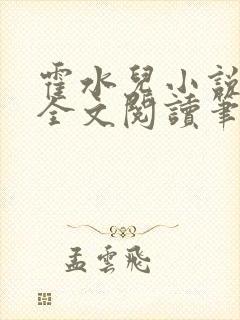 霍水兒小說
全文閱讀筆
孟雲飛